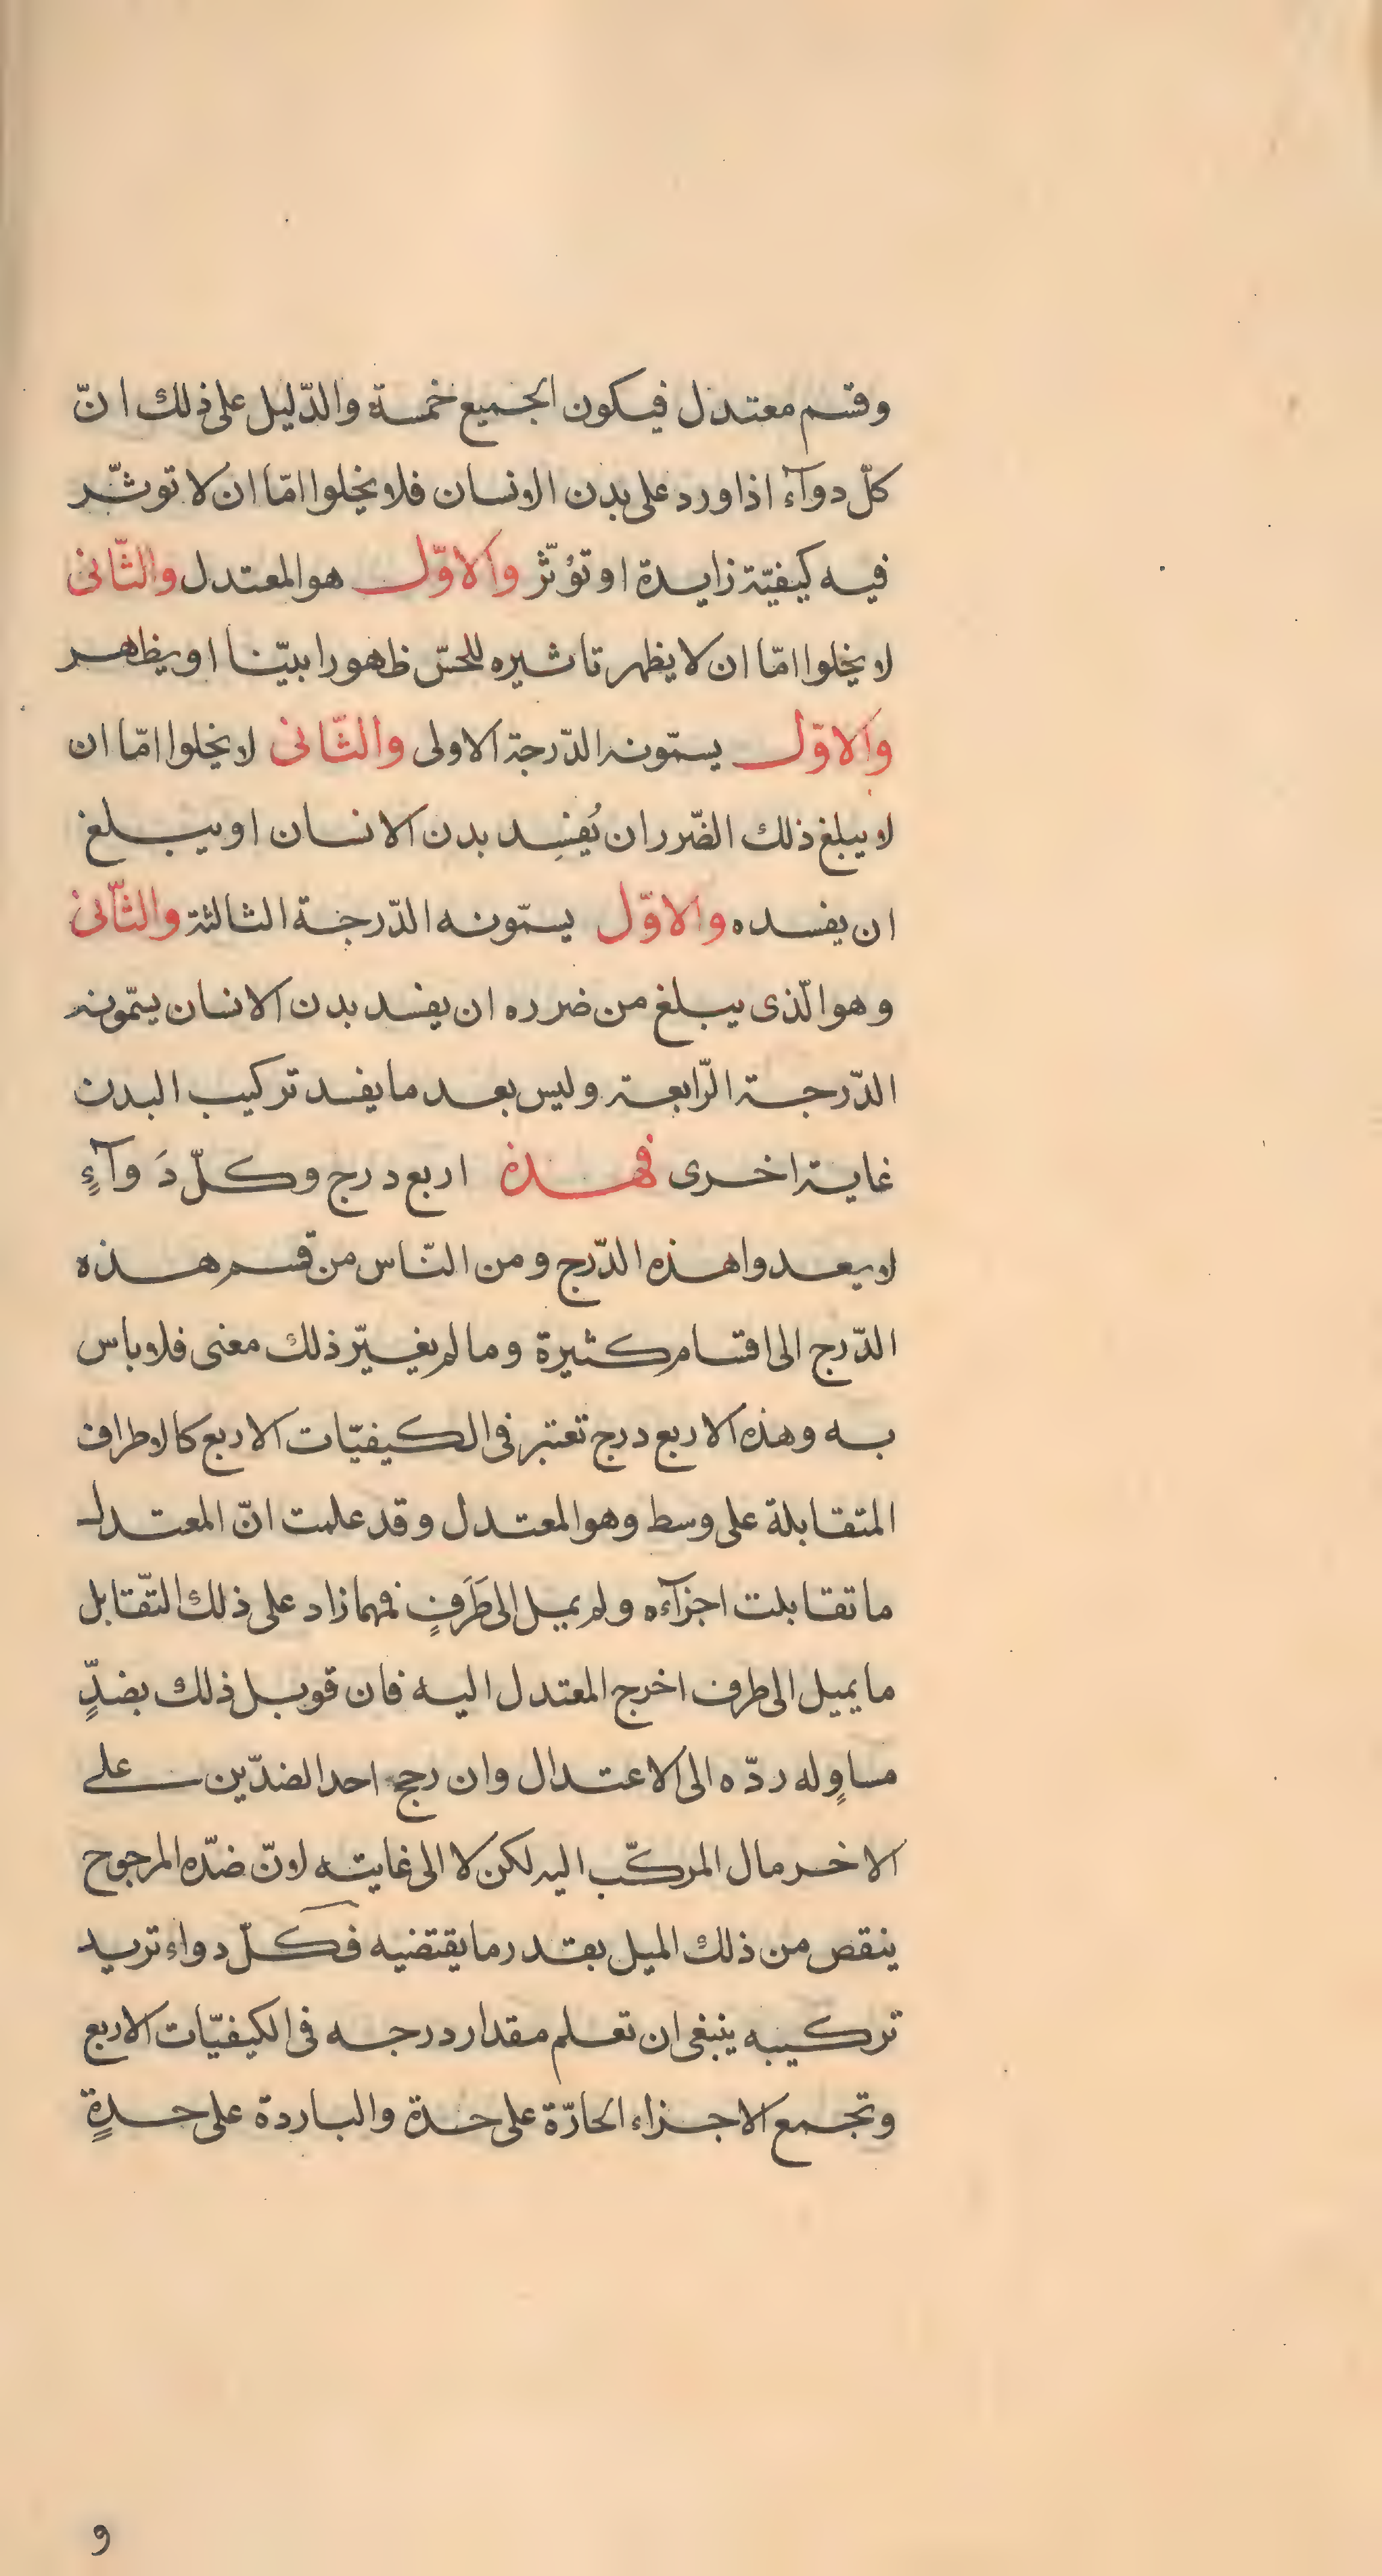 وقسم معتدل فيكون الجميع خمسة والدّليل على ذلك انّ
كلّ دوآء اذا ورد على بدن الانسان فلا يخلوا امّا ان لا توثّر
فيه كيفيّة زايدة او تؤثّر والاوّل هو المعتدل والثّانى
لا يخلوا امّا ان لا يظهر تاثيره للحسّ ظهورا بيّنا او يظهر
والاوّل يسمّونه الدّرجة الاولى والثّانى لا يخلوا امّا ان
لا يبلغ ذلك الضّرر ان يُفسِد بدن الانسان او يبلغ
ان يفسده والاوّل يسمّونه الدّرجة الثالثة والثّانى
وهو الّذى يبلغ من ضرره ان يفسد بدن الانسان يسمّونه
الدّرجة الرّابعة وليس بعد ما يفسد تركيب البدن
غاية اخرى فهذه اربع درج وكلّ دَوآءٍ
لا يعدوا هذه الدّرج ومن النّاس من قسم هذه
الدّرج الى اقسام كثيرة وما لم يغيّر ذلك معنى فلا باس
به وهذه الاربع درج تعتبر فى الكيفيّات الاربع كالاطراف
المتقابلة على وسط وهو المعتدل وقد علمت انّ المعتدل
ما تقابلت اجزآءه ولم يمل الى طَرَفٍ فمهما زاد على ذلك التّقابل
ما يميل الى طرف اخرج المعتدل اليه فان قوبل ذلك بضدٍّ
مساوٍ له ردّه الى الاعتدال وان رجح احد الضدّين على
الاخر مال المركّب اليه لكن لا الى غايته لانّ ضدّه المرجوح
ينقص من ذلك الميل بقدر ما يقتضيه فكلّ دواء تريد
تركيبه ينبغى ان تعلم مقدار درجه فى الكيفيّات الاربع
وتجمع الاجزاء الحارّة على حدة والباردة على حدةٍ
و